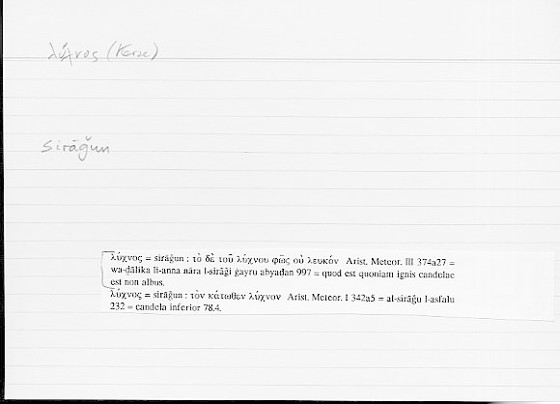 λύχνος (Kerze)
sirāǧun
λύχνος = sirāǧun : τὸ δὲ τοῦ λύχνου φῶς οὐ λευκόν Arist. Meteor. III 374a27 =
wa-ḏālika li-anna nāra l-sirāǧi ġayru abyaḍan 997 = quod est quoniam ignis candelae
est non albus.
λύχνος = sirāǧun : τὸν κάτωθεν λύχνον Arist. Meteor. I 342a5 = al-sirāǧu l-asfalu
232 = candela inferior 78.4.